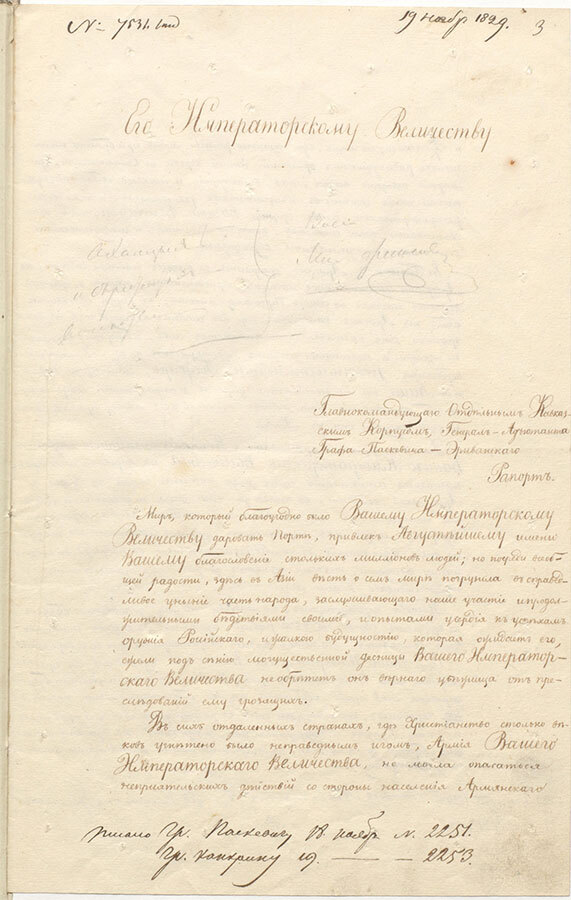 № 7531.
19 ноябр 1829. 3
Его Императорскому Величеству
Главнокомандующаго Отдѣльнымъ Кавказ-
скимъ Корпусомъ, Генералъ-Адъютанта
Графа Паскевича-Эриванскаго
Рапортъ.
Миръ, который благоугодно было Вашему Императорскому
Величеству даровать Портѣ, привлекъ Августѣйшему имени
Вашему благословенiе столькихъ миллiоновъ людей; но посреди
щей радости, здѣсь въ Азiи вѣсть о семъ мирѣ погрузила въ справед-
ливое унынiе часть народа, заслуживающаго наше участiе и продол-
жительными бѣдствiями своими, и опытами усердiя къ успѣхамъ
оружiя Россiйскаго, и жалкою будущностiю, которая ожидаетъ его,
ежели подъ сѣнiю могущественной десницы Вашего Император-
скаго Величества не обрѣтетъ онъ вѣрнаго убѣжища отъ пре-
слѣдованiй ему грозящихъ.
Въ сихъ отдаленныхъ странахъ, гдѣ Христiанство столько вѣ-
ковъ угнѣтено было неправеднымъ игомъ, Армiя Вашего
Императорскаго Величества, не могла опасаться
непрiятельскихъ дѣйствiй со стороны населенiя Армянскаго
писано Гр. Паскевичу 18. ноябр № 2251.
Гр. Канкрину 19. — — 2253.